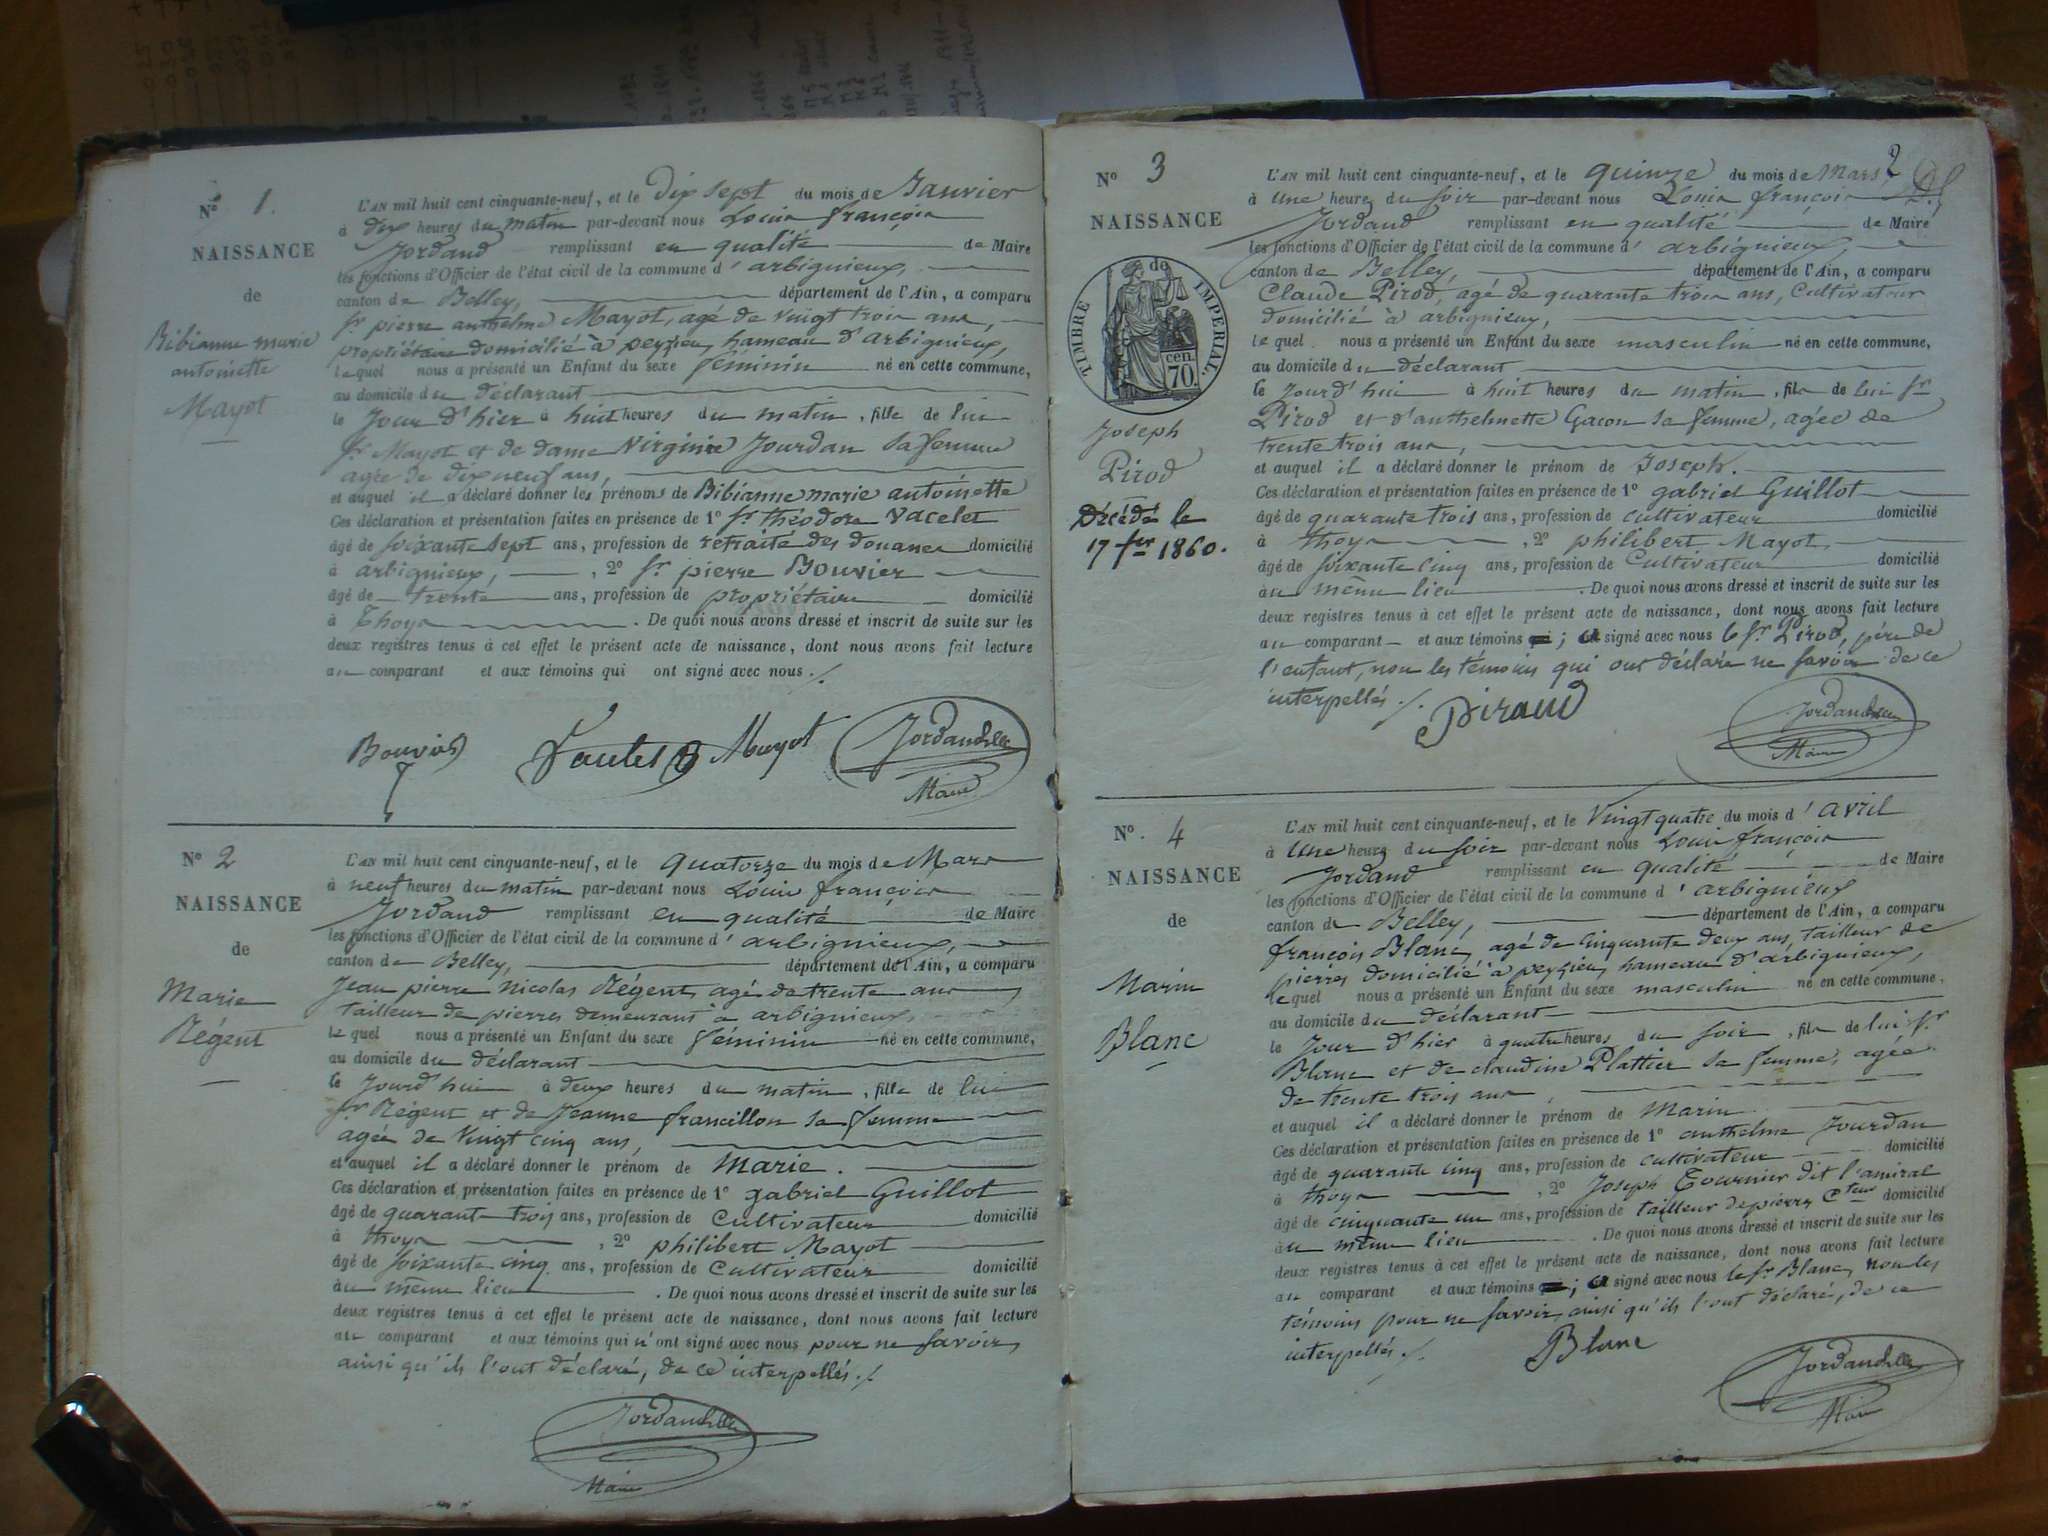 N° 1.
NAISSANCE
de
Bibianne marie
antoinette
Mayot
L'AN mil huit cent cinquante-neuf, et le Dix Sept du mois de Janvier
à dix heures du matin par-devant nous Louis françois
Jordand remplissant en qualité de Maire
les fonctions d'Officier de l'état civil de la commune d'arbignieux,
canton de Belley, département de l'Ain, a comparu
Sr pierre anthelme Mayot, agé de vingt trois ans,
propriétaire domicilié à peyzieu, hameau d'arbignieux,
lequel nous a présenté un Enfant du sexe féminin né en cette commune,
au domicile du déclarant
le Jour d'hier à huit heures du matin, fille de lui
Sr Mayot et de dame Virginie Jourdan sa femme
agée de dix neuf ans,
et auquel il a déclaré donner les prénoms de Bibianne marie antoinette
Ces déclaration et présentation faites en présence de 1° Sr théodore Vacelet
âgé de soixante sept ans, profession de retraité des douanes domicilié
à arbignieux, , 2° Sr pierre Bouvier
âgé de trente ans, profession de propriétaire domicilié
à Thoys . De quoi nous avons dressé et inscrit de suite sur les
deux registres tenus à cet effet le présent acte de naissance, dont nous avons fait lecture
au comparant et aux témoins qui ont signé avec nous ./.
Bouvier Mayot Jordand
Maire
N° 2
NAISSANCE
de
Marie
Régent
L'AN mil huit cent cinquante-neuf, et le quatorze du mois de Mars
à neuf heures du matin par-devant nous Louis françois
Jordand remplissant en qualité de Maire
les fonctions d'Officier de l'état civil de la commune d'arbignieux,
canton de Belley, département de l'Ain, a comparu
Jean pierre Nicolas Régent, agé de trente ans
tailleur de pierres demeurant à arbignieux,
lequel nous a présenté un Enfant du sexe féminin né en cette commune,
au domicile du déclarant
le Jourd'hui à deux heures du matin, fille de lui
Sr Régent et de Jeanne francillon sa femme
agée de vingt cinq ans,
et auquel il a déclaré donner le prénom de Marie.
Ces déclaration et présentation faites en présence de 1° gabriel Guillot
âgé de quarante trois ans, profession de Cultivateur domicilié
à thoys , 2° philibert Mayot
âgé de soixante cinq ans, profession de Cultivateur domicilié
au même lieu . De quoi nous avons dressé et inscrit de suite sur les
deux registres tenus à cet effet le présent acte de naissance, dont nous avons fait lecture
au comparant et aux témoins qui n'ont signé avec nous pour ne savoir,
ainsi qu'ils l'ont déclaré, de ce interpellés ./.
Jordand
Maire
2
N° 3
NAISSANCE
de
TIMBRE IMPERIAL.
70. cen.
Joseph
Pirod
Décédé le
17 fer 1860.
L'AN mil huit cent cinquante-neuf, et le quinze du mois de Mars
à une heure du soir par-devant nous Louis françois
Jordand remplissant en qualité de Maire
les fonctions d'Officier de l'état civil de la commune d'arbignieux,
canton de Belley, département de l'Ain, a comparu
Claude Pirod, agé de quarante trois ans, Cultivateur
domicilié à arbignieux,
lequel nous a présenté un Enfant du sexe masculin né en cette commune,
au domicile du déclarant
le Jourd'hui à huit heures du matin, fils de lui Sr
Pirod et d'anthelmette Gacon sa femme, agée de
trente trois ans,
et auquel il a déclaré donner le prénom de Joseph.
Ces déclaration et présentation faites en présence de 1° gabriel Guillot
âgé de quarante trois ans, profession de cultivateur domicilié
à thoys , 2° philibert Mayot,
âgé de soixante cinq ans, profession de Cultivateur domicilié
au même lieu . De quoi nous avons dressé et inscrit de suite sur les
deux registres tenus à cet effet le présent acte de naissance, dont nous avons fait lecture
au comparant et aux témoins ; a signé avec nous le Sr Pirod, père de
l'enfant, non les témoins qui ont déclaré ne savoir de ce
interpellés ./.
Piraud Jordand
Maire
N° 4
NAISSANCE
de
Marin
Blanc
L'AN mil huit cent cinquante-neuf, et le Vingt quatre du mois d'avril
à une heure du soir par-devant nous Louis françois
Jordand remplissant en qualité de Maire
les fonctions d'Officier de l'état civil de la commune d'arbignieux
canton de Belley, département de l'Ain, a comparu
françois Blanc, agé de cinquante deux ans, tailleur de
pierres domicilié à peyzieu, hameau d'arbignieux,
lequel nous a présenté un Enfant du sexe masculin né en cette commune,
au domicile du déclarant
le Jour d'hier à quatre heures du soir, fils de lui Sr
Blanc et de claudine Plattier sa femme, agée
de trente trois ans,
et auquel il a déclaré donner le prénom de Marin
Ces déclaration et présentation faites en présence de 1° anthelme Jourdan
âgé de quarante cinq ans, profession de cultivateur domicilié
à thoys , 2° Joseph Tournier dit l'amiral
âgé de cinquante un ans, profession de tailleur de pierres domicilié
au même lieu . De quoi nous avons dressé et inscrit de suite sur les
deux registres tenus à cet effet le présent acte de naissance, dont nous avons fait lecture
au comparant et aux témoins ; a signé avec nous le Sr Blanc, non les
témoins pour ne savoir, ainsi qu'ils l'ont déclaré, de ce
interpellés ./.
Blanc Jordand
Maire